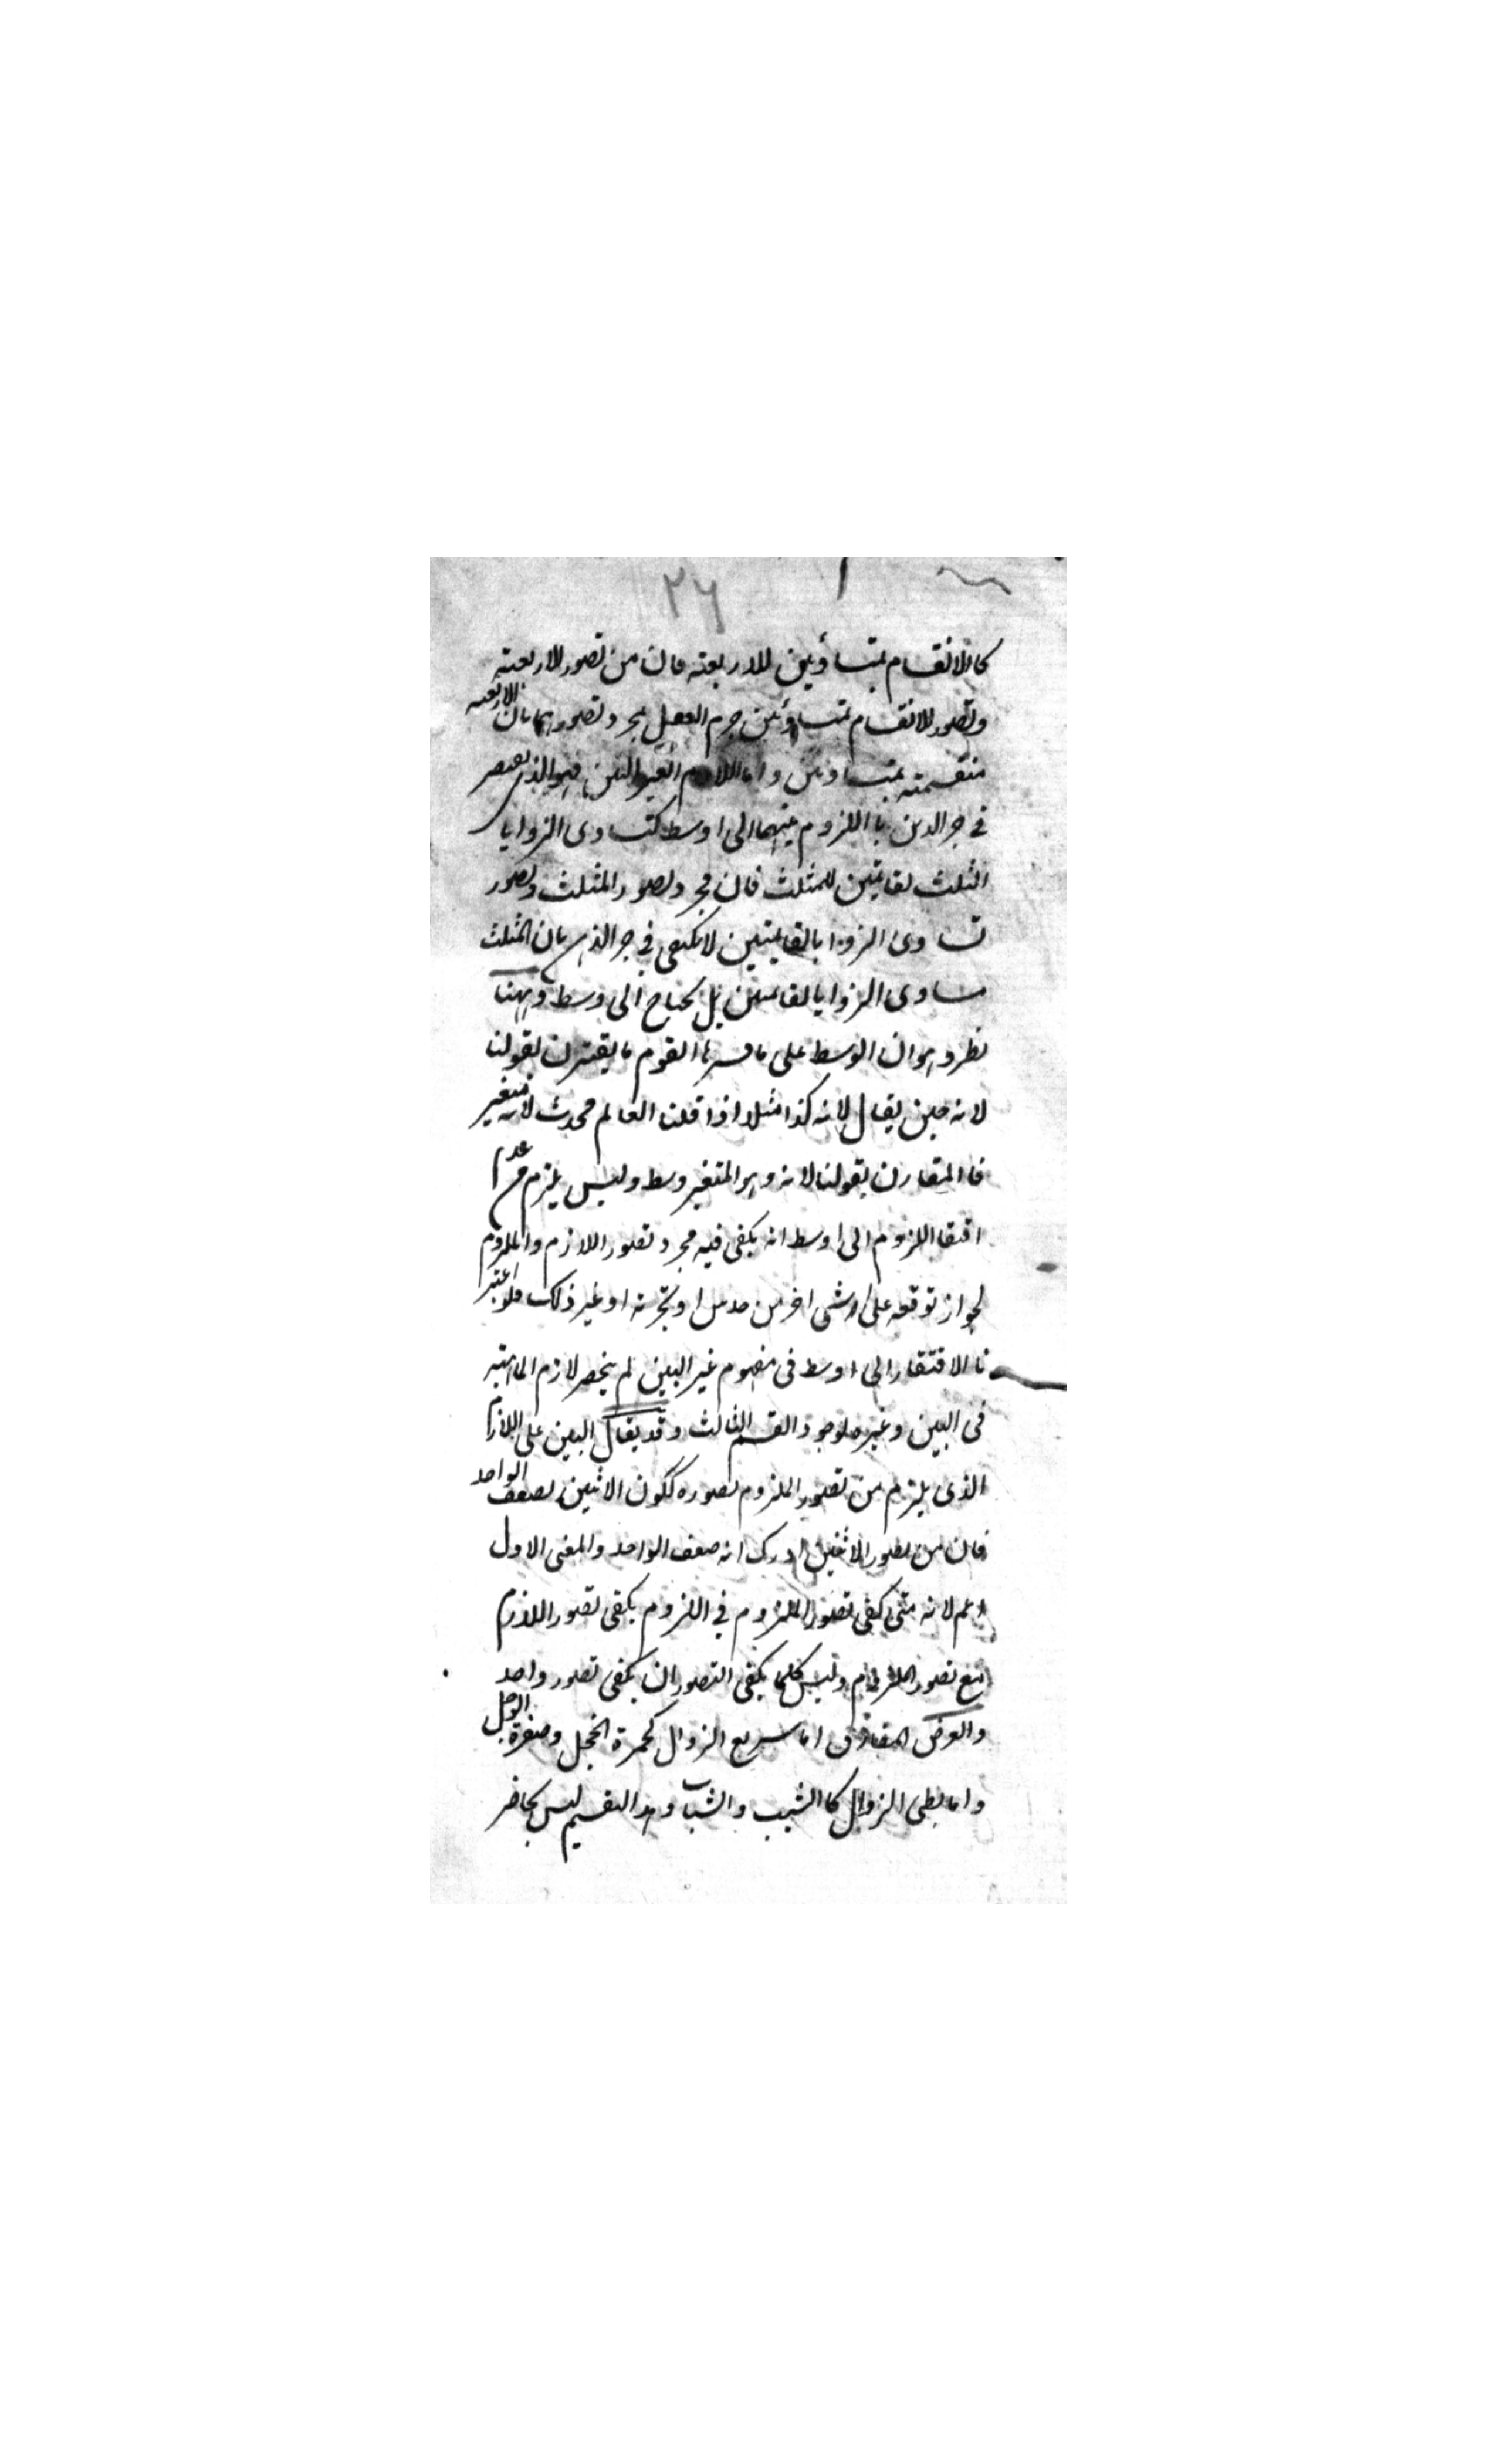 ٢٦
كالانقسام بمتساويين للاربعة فان من تصور الاربعة
وتصور الانقسام بمتساويين جزم العقل بمجرد تصورهما بان الاربعة
منقسمة بمتساويين واما اللازم الغير البين فهو الذي يفتقر
في جزم الذهن باللزوم بينهما الى اوسط كتساوى الزوايا
الثلث لقائمتين للمثلث فان مجرد تصور المثلث وتصور
تساوى الزوايا بالقايمتين لا يكفى في جزم الذهن بان المثلث
متساوى الزوايا لقائمتين بل يحتاج الى وسط وههنا
نظر وهو ان الوسط على ما فسره القوم ما يقترن بقولنا
لانه حين يقال لانه كذا مثلا اذا قلنا العالم محدث لانه متغير
فالمقارن بقولنا لانه وهو المتغير وسط وليس يلزم من عدم
افتقا اللزوم الى اوسط انه يكفى فيه مجرد تصور اللازم والملزوم
لجواز توقفه على شى اخر من حدس او تجربة او غير ذلك فلو اعتبر
نا الافتقار الى اوسط فى مفهوم غير البين لم ينحصر لازم الماهية
فى البين وغيره لوجود القسم الثالث وقد يقال البين على اللازم
الذى يلزم من تصور الملزوم تصوره ككون الاثنين ضعف الواحد
فان من تصور الاثنين ادرك انه ضعف الواحد والمعنى الاول
اعم لانه متى كفى تصور الملزوم في اللزوم يكفى تصور اللازم
مع تصور الملزوم وليس كلما يكفى التصوران يكفى تصور واحد
والعرض المفارق اما سريع الزوال كحمرة الخجل وصفرة الوجل
واما بطى الزوال كالشيب والشباب وهذا التقسيم ليس بحاضر